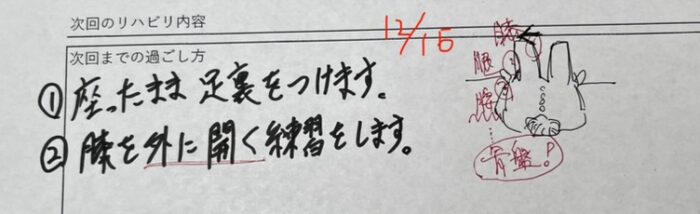 次回のリハビリ内容
12/15
次回までの過ごし方
①座ったまま 足裏をつけます。
②膝を外に開く練習をします。
膝
腿
腰
骨盤!